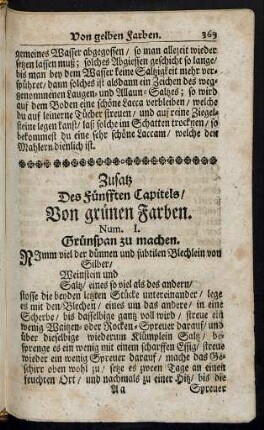 Von gelben Farben. 369
gemeines Wasser abgegossen / so man allezeit wieder
setzen lassen muß; solches Abgiessen geschicht so lange/
biß man bey dem Wasser keine Saltzigkeit mehr ver-
spühret / dann solches ist alsdann ein Zeichen des weg-
genommenen Laugen- und Allaun-Saltzes; so wird
auf dem Boden eine schöne Lacca verbleiben / welche
du auf leinerne Tücher streuen / und auf reine Ziegel-
steine legen kanst / laß solche im Schatten trocknen / so
bekommest du eine sehr schöne Laccam / welche den
Mahlern dienlich ist.
Zusatz
Des Fünfften Capitels/
Von grünen Farben.
Num. I.
Grünspan zu machen.
NImm viel der dünnen und subtilen Blechlein von
Silber/
Weinstein und
Saltz / eines so viel als des andern/
stosse die beyden letzten Stücke untereinander / lege
es mit den Blechen / eines um das andere / in eine
Scherbe / bis dasselbige gantz voll wird / streue ein
wenig Waitzen- oder Rocken-Spreuer darauf / und
über dieselbige wiederum Klümplein Saltz / be-
sprenge es ein wenig mit einem scharffen Essig / streue
wieder ein wenig Spreuer darauf / mache das Ge-
schirr oben wohl zu / setze es zween Tage an einen
feuchten Ort / und nachmals zu einer Hitz / bis die
Aa Spreuer